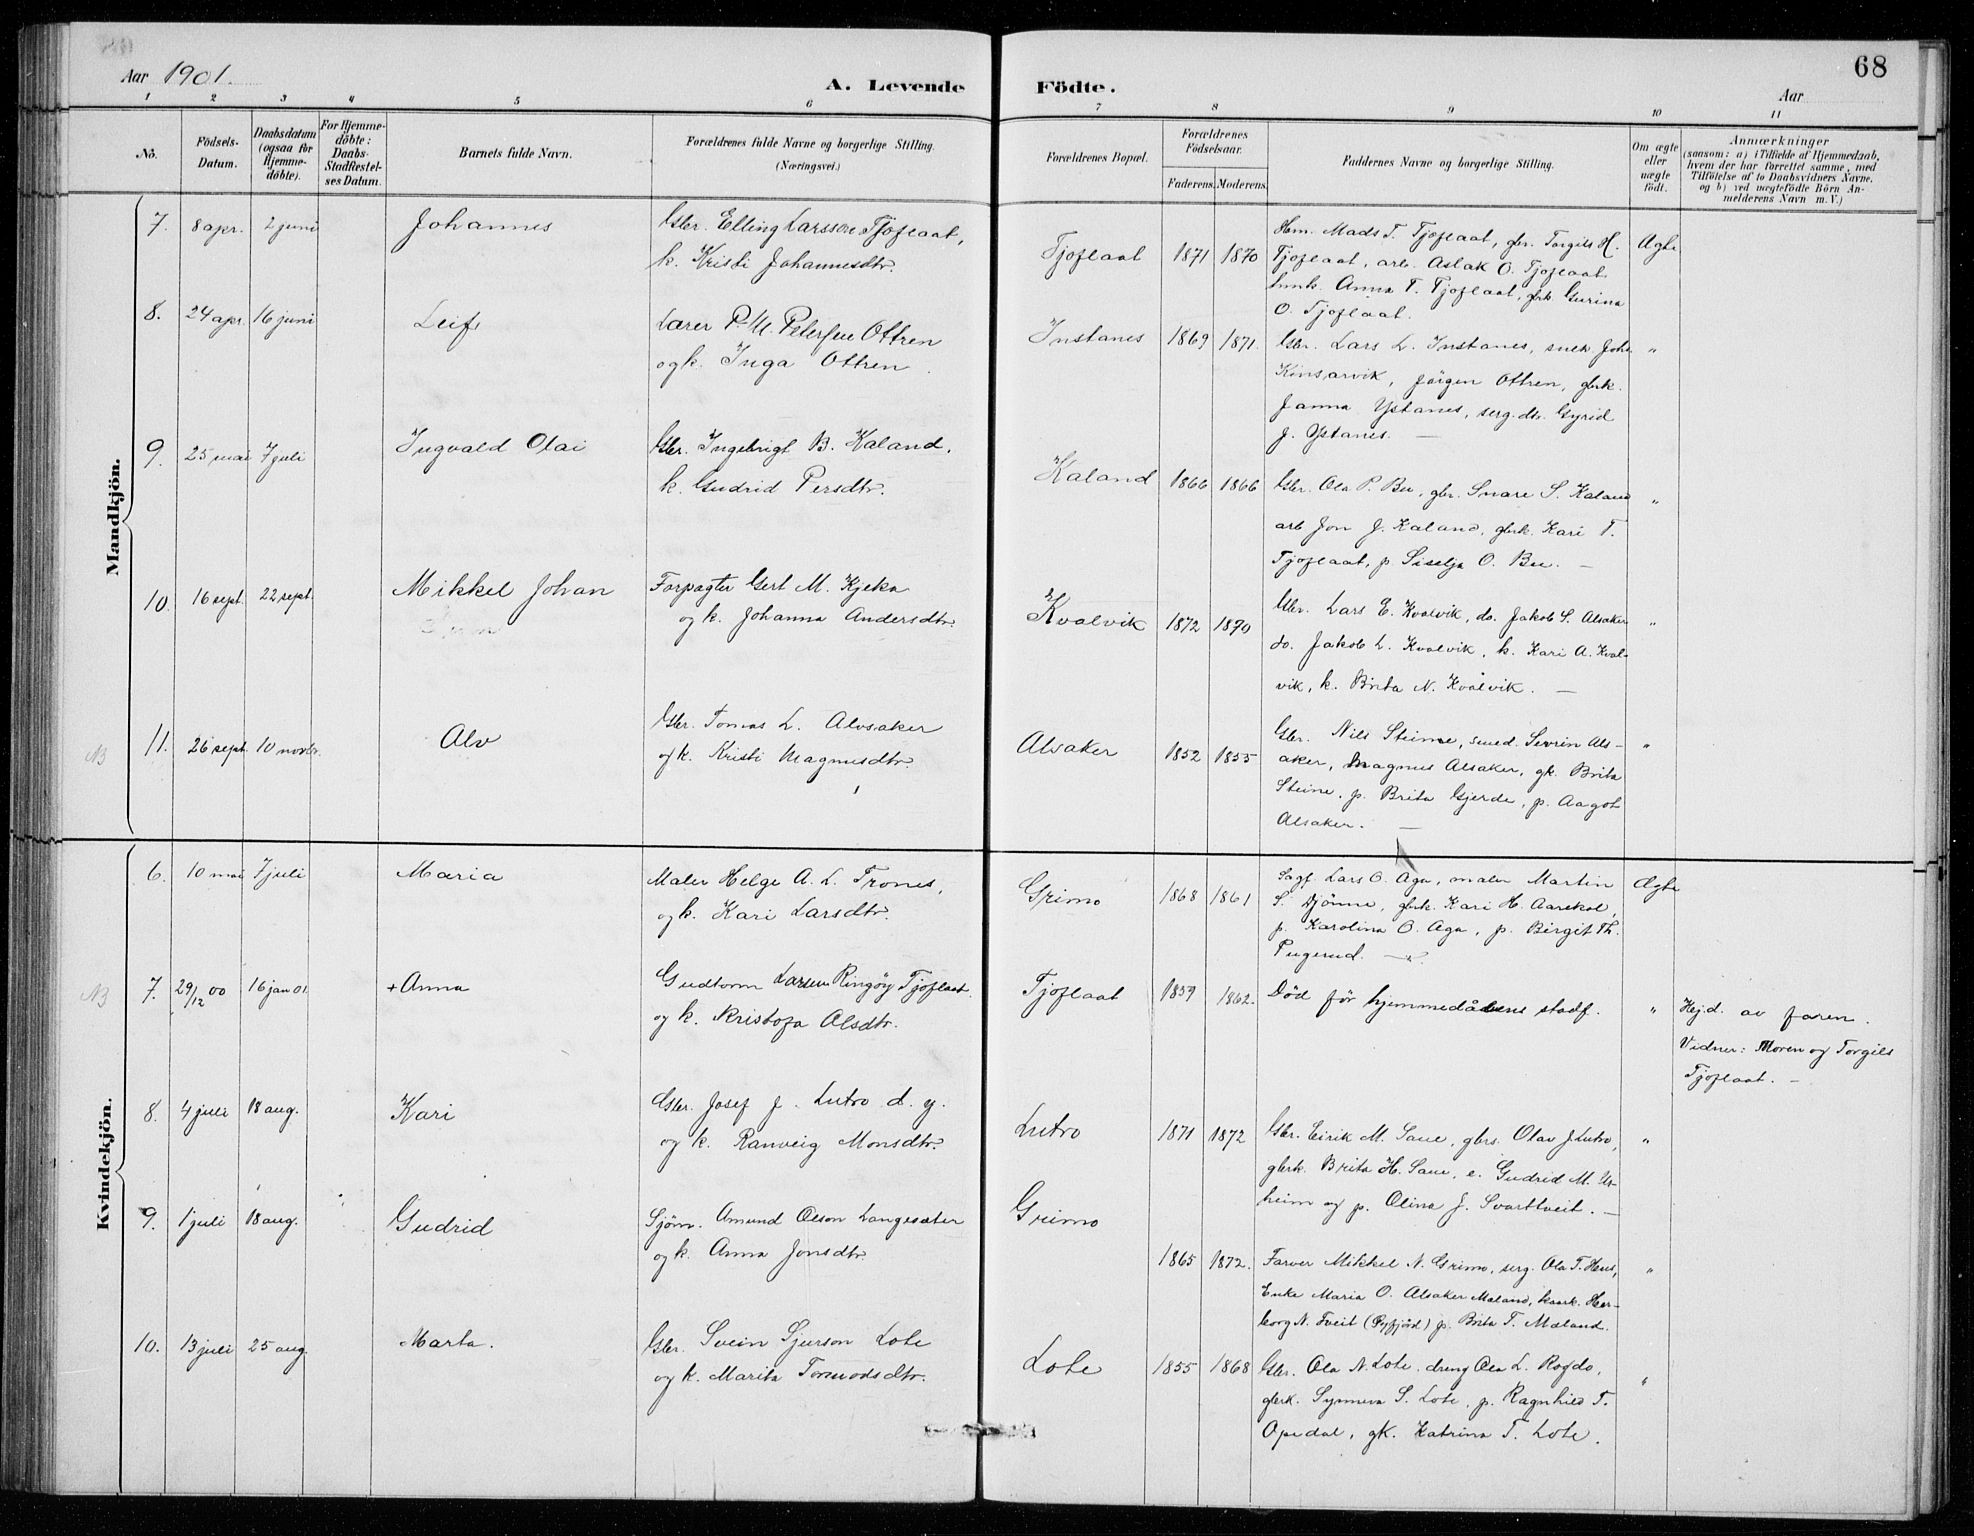 68
Aar 1901.
A. Levende Födte.
Aar
1 2 3 4 5 6 7 8 9 10 11
No.
Födsels-Datum.
Daabsdatum (ogsaa for Hjemme-döbte).
For Hjemme-döbte: Daabs-Stadfæstel-ses Datum.
Barnets fulde Navn.
Forældrenes fulde Navne og borgerlige Stilling. (Næringsvei.)
Forældrenes Bopæl.
Forældrenes Födselsaar.
Faderens. Moderens.
Faddernes Navne og borgerlige Stilling.
Om ægte eller uægte födt.
Anmærkninger
(saasom: a) i Tilfælde af Hjemmedaab,
hvem der har forrettet samme, med
Tilföielse af to Daabsvidners Navne,
og b) ved uægtefödte Börn An-
melderens Navn m. V.)
Mandkjön.
7. 8 apr. 2 juni Johannes
Gbr. Elling Larsson Tjoflaat,
k. Kristi Johannesdtr.
Tjoflaat 1871 1870
Hem. Mads T. Tjoflaat, gbr. Torgils H.
Tjoflaat, arb. Aslak O. Tjoflaat
hmk. Anna T. Tjoflaat, gbk. Gurina
O. Tjoflaat.
Ægte
8. 24 apr. 16 juni Leif
Lærer P. M. Petersen Ottren
og k. Inga Ottren.
Instanes 1869 1871.
Gbr. Lars L. Instanes, snek Joh.
Kinsarvik, Jörgen Ottren, gbrk.
Janna Ystanes, serg. dtr. Gyrid
J. Ystanes. —
"
9. 25 mai 7 juli Ingvald Olai
Gbr. Ingebrigt B. Kaland,
k. Gudrid Persdtr.
Kaland 1866 1866
Gbr. Ola P. Bu, gbr. Snare S. Kaland
arb Jon J. Kaland, gbrk. Kari T.
Tjoflaat, p Siselja O. Bu. —
"
10. 16 sept. 22 sept. Mikkel Johan
Forpagter Gert M. Kjeka
og k. Johanna Andersdtr.
Kvalvik 1872 1870
Gbr. Lars E. Kvalvik, do. Jakob S. Alsaker
do. Jakob L. Kvalvik, k. Kari A. Kval-
vik, k. Brita N. Kvalvik. —
"
NB 11. 26 sept. 10 novbr. Alv
Gbr. Tomas L. Alvsaker
og k. Kristi Magnusdtr.
Alsaker 1852 1855
Gbr. Nils Steine, smed. Sevrin Als-
aker, Magnus Alsaker, gk. Brita
Steine, p. Brita Gjerde, p. Aagot
Alsaker. —
"
Kvindekjön.
6. 10 mai 7 juli Maria
Maler Helge A. L. Trones,
og k. Kari Larsdtr.
Grimo 1868 1861
Sagf Lars O. Aga, maler Martin
S. Djönne, gbrk. Kari H. Aarekol,
p. Karolina O. Aga, p. Birgit Th.
Pugerud.
Ægte
NB 7. 29/12 00 16 jan 01. + Anna
Gudtorm Larsen Ringöy Tjoflaat.
og k. Kristofa Olsdtr.
Tjoflaat 1859 1862.
Död för hjemmedåbens stadf.
"
Hej.d. av faren.
Vidner: Moren og Torgils
Tjoflaat. —
8. 4 juli 18 aug. Kari
Gbr. Josef J. Lutro d. y.
og k. Ranveig Monsdtr.
Lutro 1871 1872
Gbr. Eirik M. Saue, gbrs. Olav J Lutro,
gbrk. Brita H. Saue, e. Gudrid M. Us-
heim og p. Olina J. Svarttveit. —
"
9. 1 juli 18 aug. Gudrid
Sjöm. Amund Olson Langesæter
og k. Anna Jonsdtr
Grimo 1865 1872.
Farver Mikkel N. Grimo, serg. Ola T. Hus,
Enke Maria O. Alsaker Mæland, kaark. Her-
borg N. Tveit (Ryfjörd) p. Brita T. Mæland.
"
10. 13 juli 25 aug. Marta.
Gbr. Svein Sjurson Lote
og k. Marita Tormodsdtr.
Lote 1855 1868
Gbr. Ola N. Lote, dreng Ola L. Rogdo,
gbrk. Synneva S. Lote, p. Ragnhild T.
Opedal, gk. Katrina T. Lote.
"